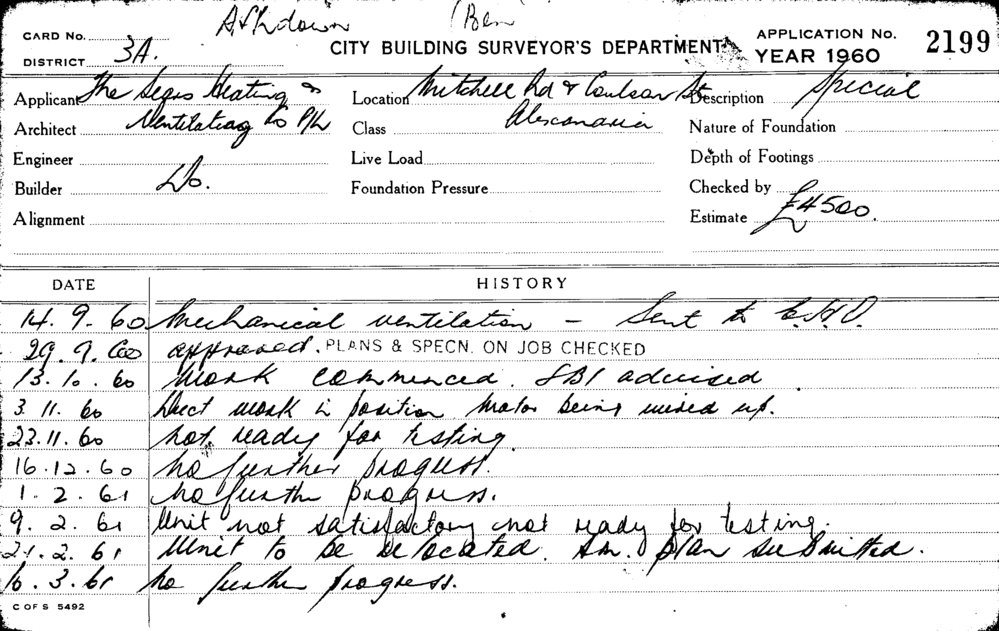 Ashdown (Ben
CARD No.
DISTRICT 3A.
CITY BUILDING SURVEYOR'S DEPARTMENT
APPLICATION No. 2199
YEAR 1960
Applicant The Segns Heating &
Location Mitchell Rd & Coulson St
Description Special
Architect Ventilating Co P/L
Class Alexandria
Nature of Foundation
Engineer
Live Load
Depth of Footings
Builder Do.
Foundation Pressure
Checked by
Alignment
Estimate £4500.
DATE HISTORY
14. 9. 60 Mechanical ventilation – Sent to C.H.O.
29. 9. 60 approved. PLANS & SPECN. ON JOB CHECKED
13. 10. 60 Work commenced. SBI advised.
3. 11. 60 Duct work in position Motor being wired up.
23. 11. 60 not ready for testing
16. 12. 60 no further progress.
1. 2. 61 no further progress.
9. 2. 61 Unit not satisfactory not ready for testing.
21. 2. 61 Unit to be relocated. Am. plan submitted.
16. 3. 61 no further progress.
C OF S 5492